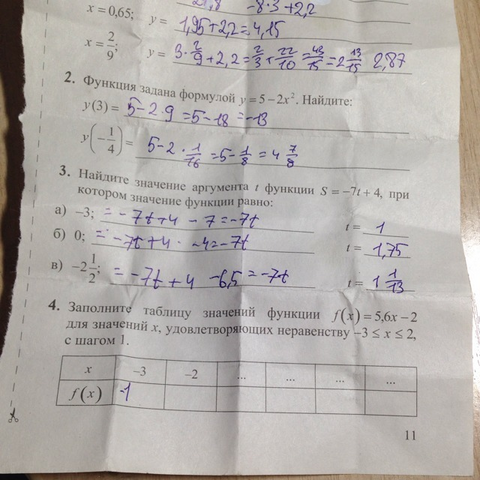 21,8 -8·3+2,2
x = 0,65; y = 1,95+2,2=4,15
x = 2/9; y = 3·2/9+2,2=2/3+22/10=43/15=2 13/15 2,87
2. Функция задана формулой y = 5 – 2x². Найдите:
y(3) = 5-2·9=5-18=-13
y(–1/4) = 5-2·1/16=5-1/8=4 7/8
3. Найдите значение аргумента t функции S = –7t + 4, при
котором значение функции равно:
а) –3; = -7t+4 -7=-7t t = 1
б) 0; = -7t+4 -4=-7t t = 1,75
в) –2 1/2; = -7t+4 -6,5=-7t t = 1 1/13
4. Заполните таблицу значений функции f(x) = 5,6x – 2
для значений x, удовлетворяющих неравенству –3 ≤ x ≤ 2,
с шагом 1.
x –3 –2 ... ... ... ...
f(x) -1
11